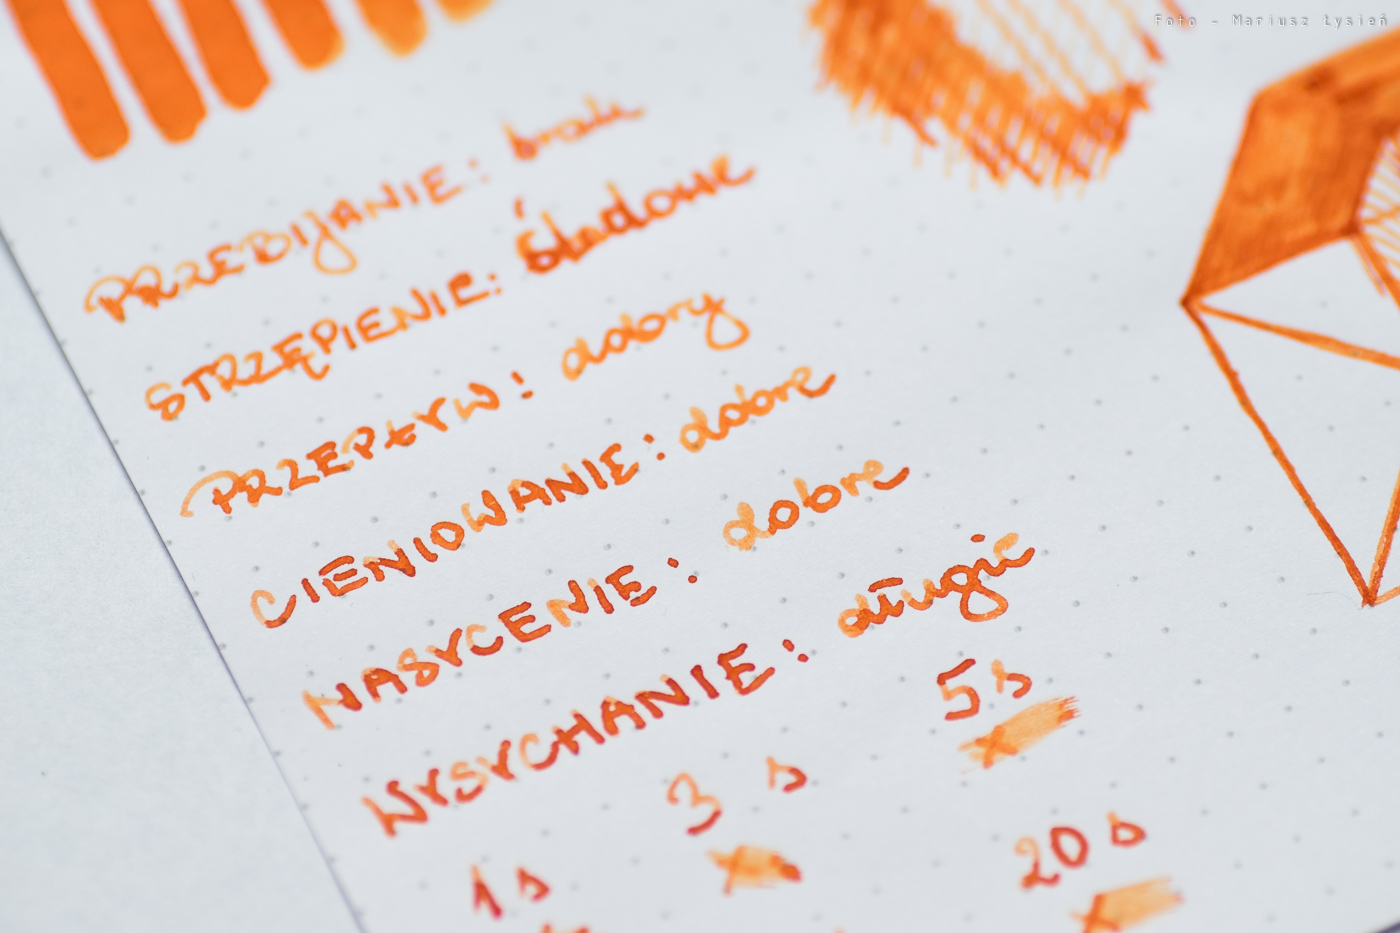 Foto - Mariusz Łysień
PRZEBIJANIE: brak
STRZĘPIENIE: śladowe
PRZEPŁYW: dobry
CIENIOWANIE: dobre
NASYCENIE: dobre
WYSYCHANIE: długie
1s 3s 5s
20s